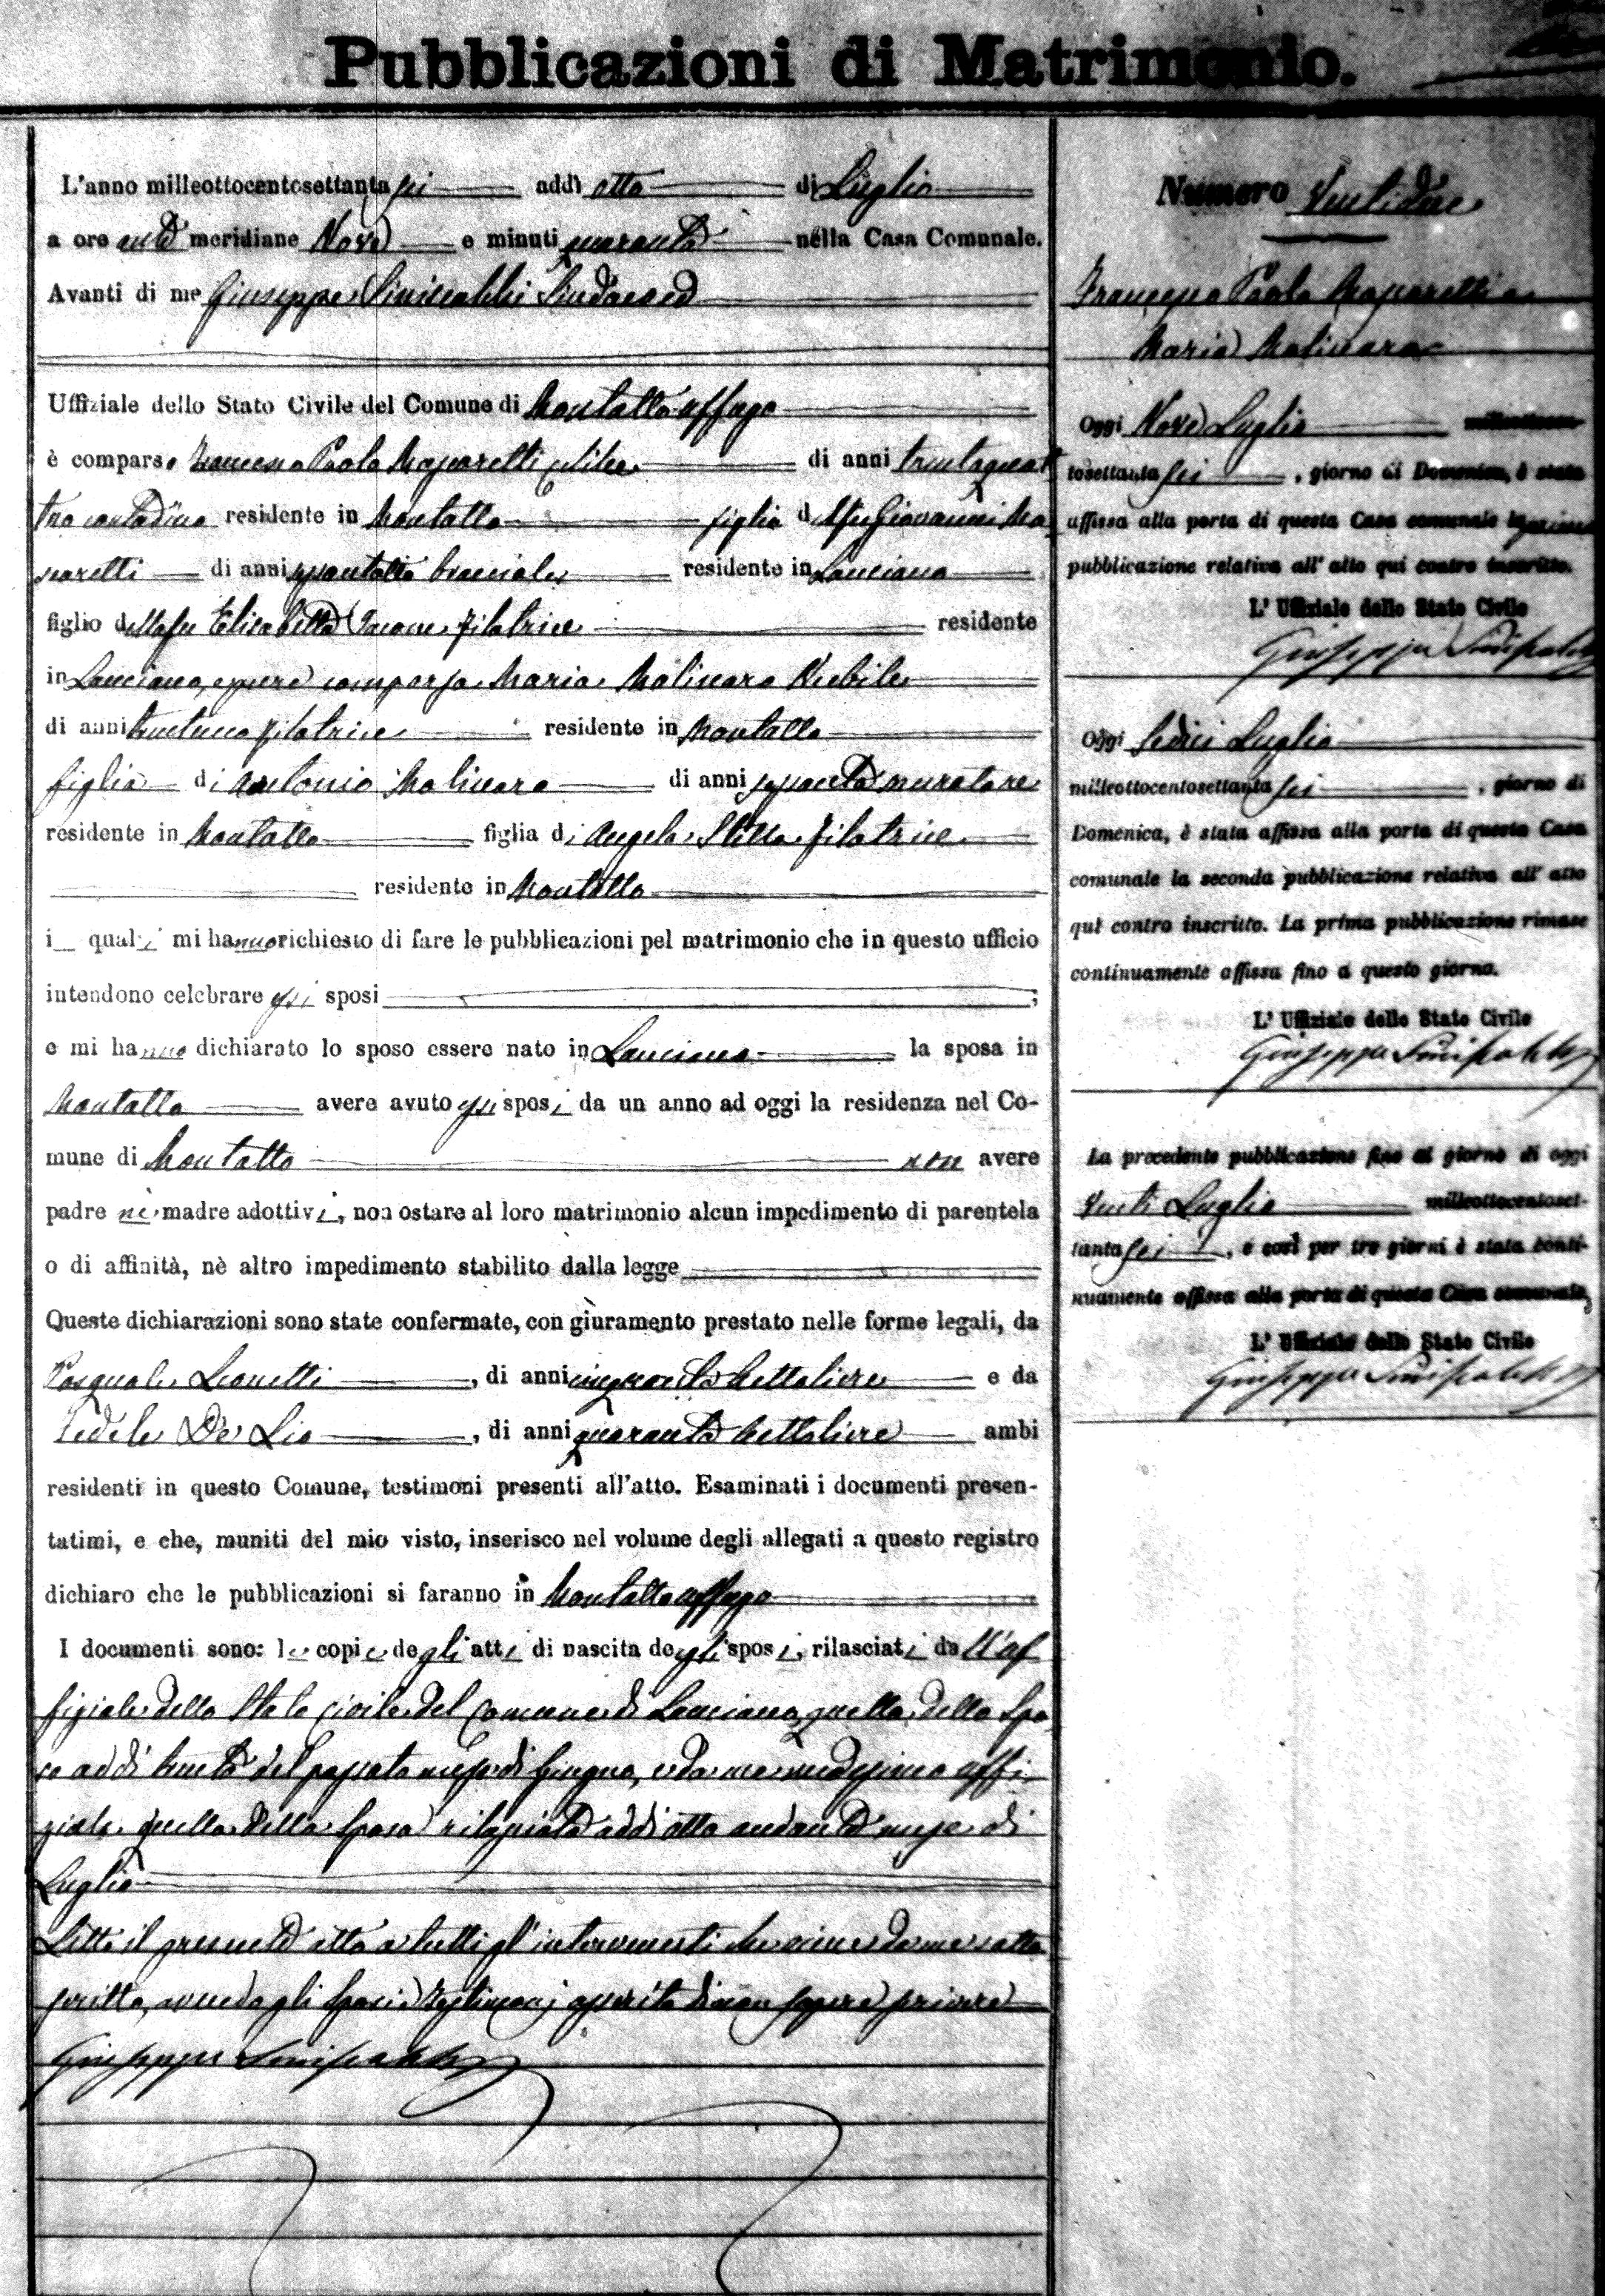 Pubblicazioni di Matrimonio.
L'anno milleottocentosettanta sei addì otto di Luglio
a ore ante meridiane Nove e minuti quaranta nella Casa Comunale.
Avanti di me Giuseppe Siniscalchi Sindaco
Uffiziale dello Stato Civile del Comune di Montalto uffugo
è comparso Francesco Paolo celibe di anni trentaquat
tro contadino residente in Montalto figlio del fu Giovanni Ma
scaretti di anni braciale residente in Lanciano
figlio della fu Elisabetta filatrice residente
in Lanciano, eppure comparsa Maria Molinaro Nubile
di anni trentuno filatrice residente in Montalto
figlia di Antonio Molinaro di anni sessanta muratore
residente in Montalto figlia di Angela Stella filatrice
residente in Montalto
i quali mi hanno richiesto di fare le pubblicazioni pel matrimonio che in questo ufficio
intendono celebrare essi sposi ;
e mi hanno dichiarato lo sposo essere nato in Lanciano la sposa in
Montalto avere avuto essi sposi da un anno ad oggi la residenza nel Co-
mune di Montalto non avere
padre nè madre adottivi, non ostare al loro matrimonio alcun impedimento di parentela
o di affinità, nè altro impedimento stabilito dalla legge
Queste dichiarazioni sono state confermate, con giuramento prestato nelle forme legali, da
Pasquale Leonetti, di anni cinquanta bettoliere e da
Fedele De Lio, di anni quaranta bettoliere ambi
residenti in questo Comune, testimoni presenti all'atto. Esaminati i documenti presen-
tatimi, e che, muniti del mio visto, inserisco nel volume degli allegati a questo registro
dichiaro che le pubblicazioni si faranno in Montalto uffugo
I documenti sono: le copie degli atti di nascita degli sposi, rilasciati dall'uf
fiziale dello Stato civile del Comune di Lanciano, quella dello Spo
so addì trenta del passato mese di Giugno, e da me medesimo uffi
ziale quella della Sposa rilasciata addì otto andante mese di
Luglio
Letto il presente atto a tutti gl'intervenuti che viene da me sotto
scritto, avendo gli Sposi e Testimonj asserito di non sapere scrivere
Giuseppe Siniscalchi
Numero Ventidue
Francesco Paolo
Maria Molinaro
Oggi Nove Luglio milleottocen-
tosettanta sei, giorno di Domenica, è stata
affissa alla porta di questa Casa comunale la prima
pubblicazione relativa all'atto qui contro inscritto.
L'Uffiziale dello Stato Civile
Giuseppe Siniscalchi
Oggi Sedici Luglio
milleottocentosettanta sei, giorno di
Domenica, è stata affissa alla porta di questa Casa
comunale la seconda pubblicazione relativa all'atto
quì contro inscritto. La prima pubblicazione rimase
continuamente affissa fino a questo giorno.
L'Uffiziale dello Stato Civile
Giuseppe Siniscalchi
La precedente pubblicazione fino al giorno di oggi
Venti Luglio milleottocentoset-
tanta sei, e così per tre giorni è stata conti-
nuamente affissa alla porta di questa Casa comunale,
L'Uffiziale dello Stato Civile
Giuseppe Siniscalchi